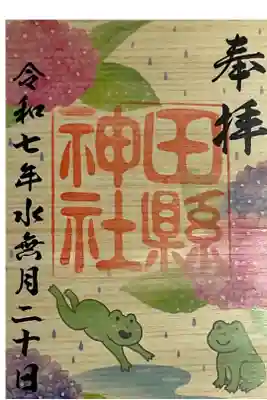 奉拝
田縣神社
令和七年水無月二十日